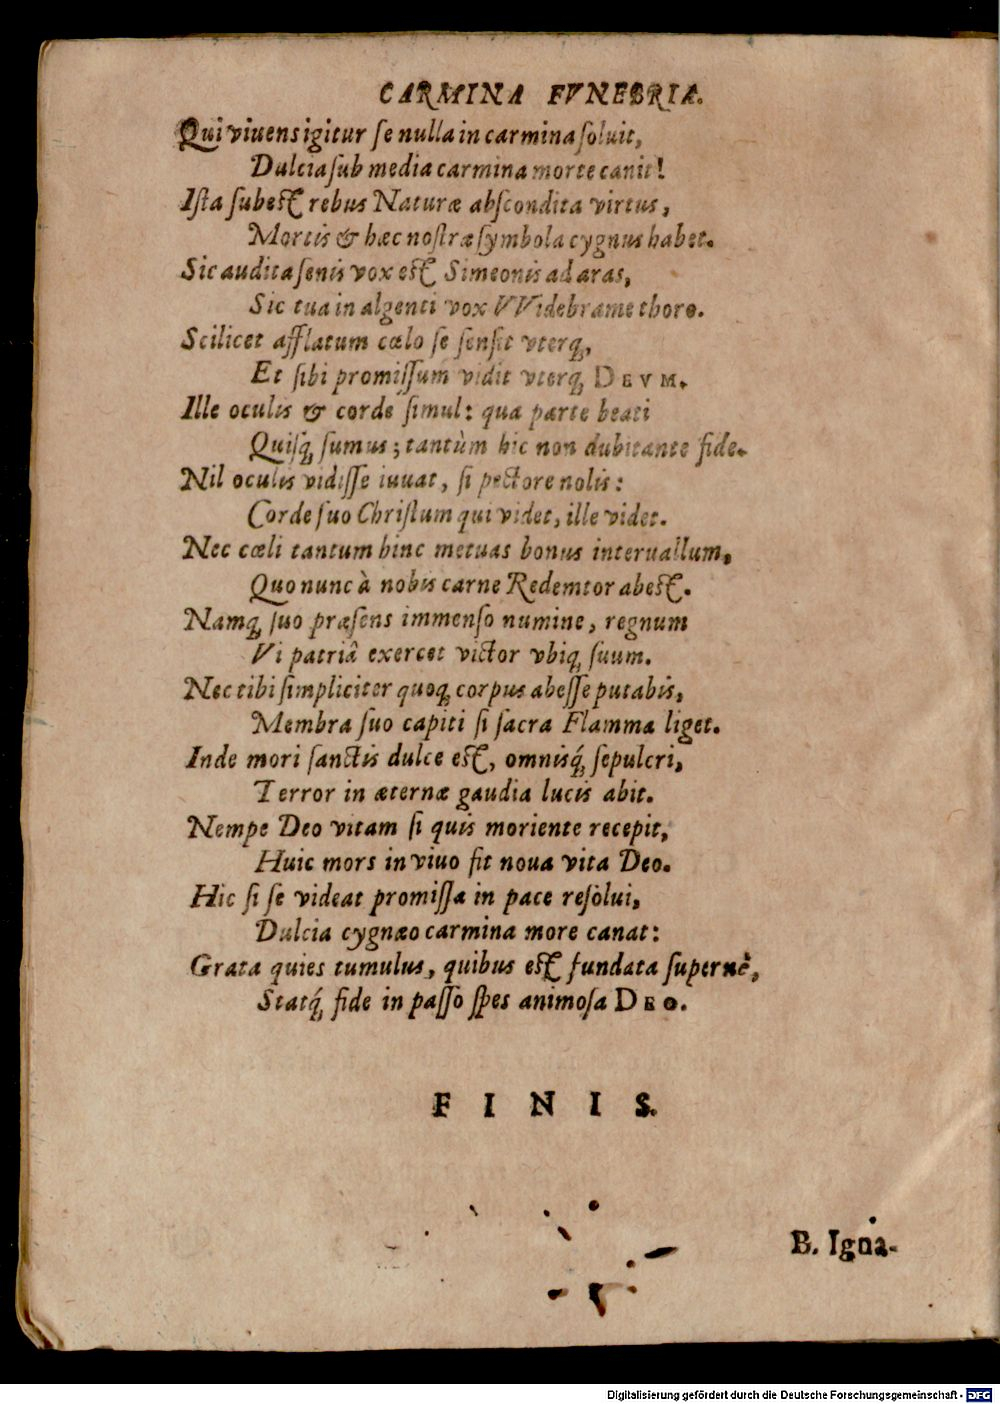 CARMINA FVNEBRIA.
Qui viuens igitur se nulla in carmina soluit,
Dulcia sub media carmina morte canit!
Ista subest rebus Naturæ abscondita virtus,
Mortis & hæc nostræ symbola cygnus habet.
Sic audita senis vox est Simeonis ad aras,
Sic tua in algenti vox VVidebrame thoro.
Scilicet afflatum cœlo se sensit vterq́,
Et sibi promissum vidit vterq́ DEVM.
Ille oculis & corde simul: qua parte beati
Quisq́ sumus; tantùm hic non dubitante fide.
Nil oculis vidisse iuuat, si pectore nolis:
Corde suo Christum qui videt, ille videt.
Nec cœli tantum hinc metuas bonus interuallum,
Quo nunc à nobis carne Redemtor abest.
Namq́ suo præsens immenso numine, regnum
Vi patriâ exercet victor vbiq́ suum.
Nec tibi simpliciter quoq́ corpus abesse putabis,
Membra suo capiti si sacra Flamma liget.
Inde mori sanctis dulce est, omnisq́ sepulcri,
Terror in æternæ gaudia lucis abit.
Nempe Deo vitam si quis moriente recepit,
Huic mors in viuo fit noua vita Deo.
Hic si se videat promissa in pace resolui,
Dulcia cygnæo carmina more canat:
Grata quies tumulus, quibus est fundata supernè,
Statq́ fide in passo spes animosa DEO.
FINIS.
B. Igna-
Digitalisierung gefördert durch die Deutsche Forschungsgemeinschaft - DFG